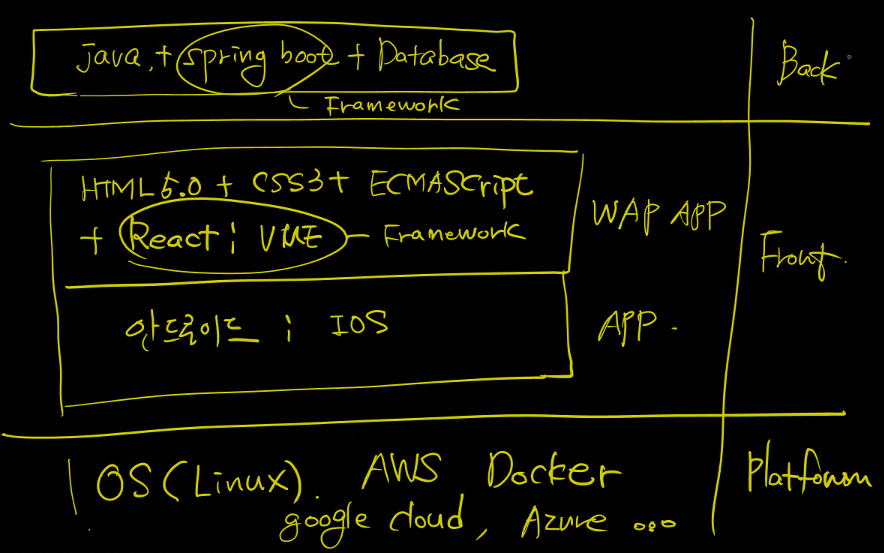 java, + spring boot + Database
Framework
Back
HTML5.0 + CSS3 + ECMAScript
+ React ; VUE - Framework
WAP APP
Front.
안드로이드 ; IOS
APP.
OS(Linux). AWS Docker
google cloud, Azure ...
Platforom